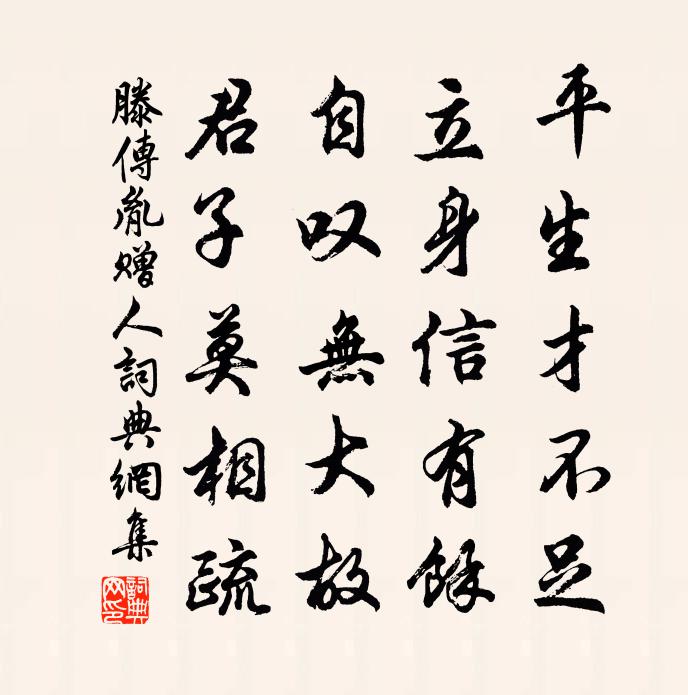 平生才不足
立身信有餘
自叹無大故
君子莫相疏
滕傳胤贈人詞典網集
詞典
网印